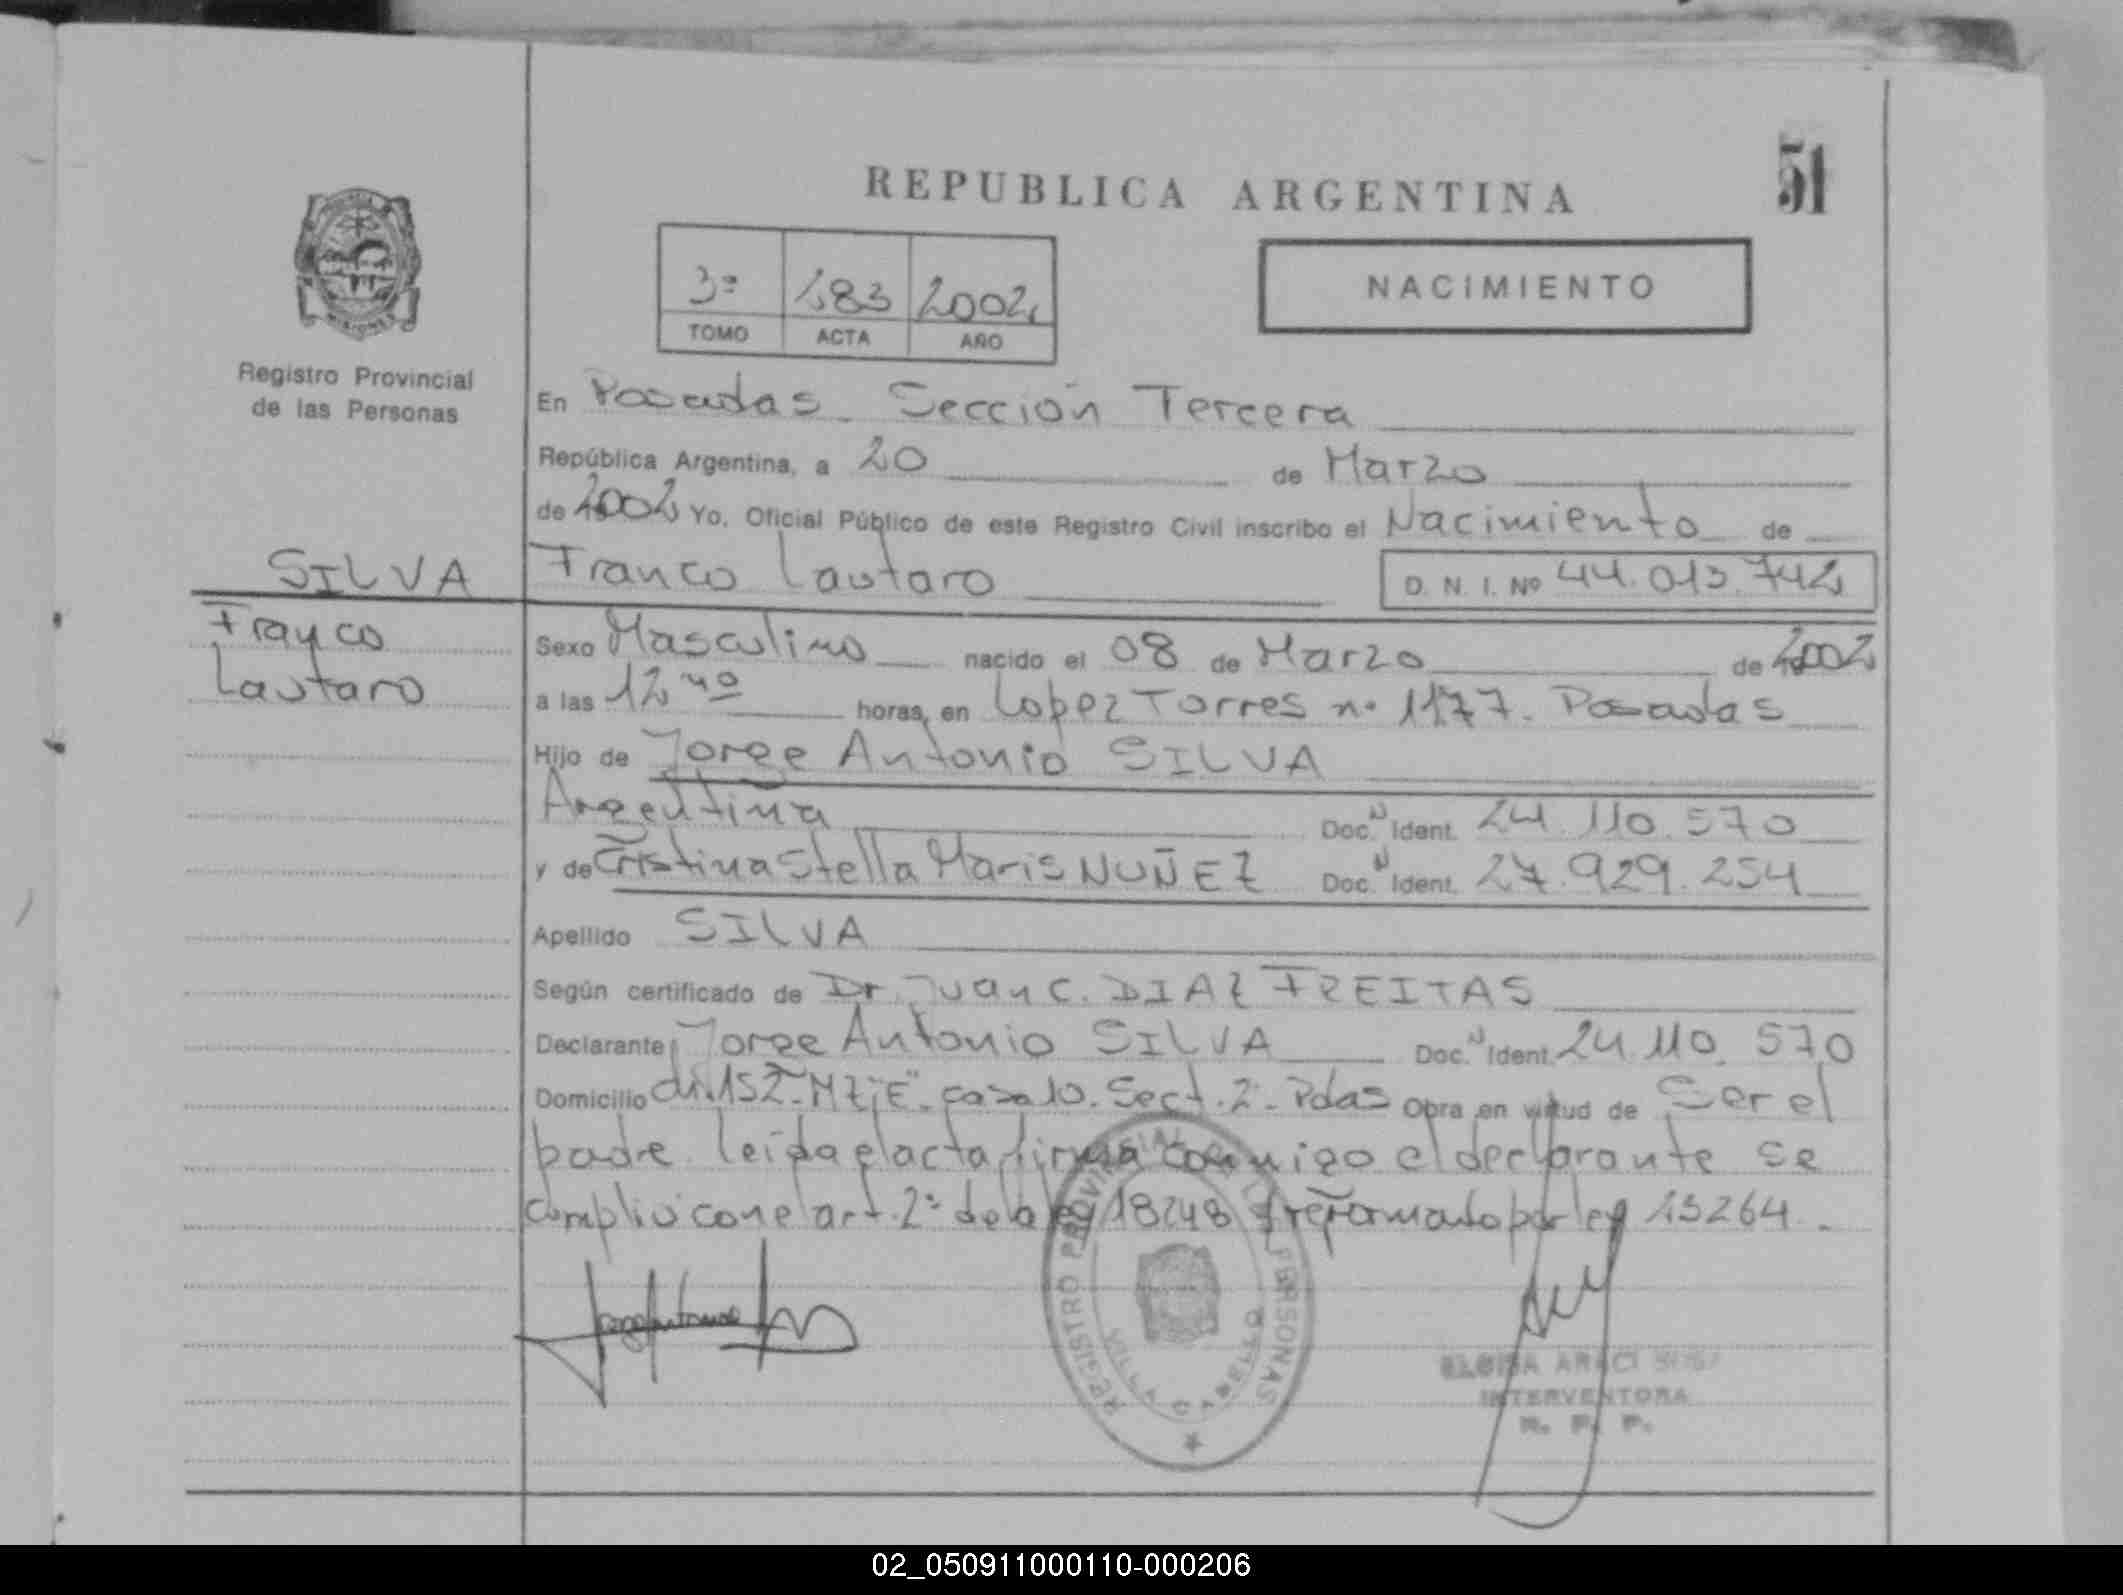 REPUBLICA ARGENTINA
51
3º 283 2002
TOMO ACTA AÑO
NACIMIENTO
MISIONES
Registro Provincial
de las Personas
En Posadas Sección Tercera
República Argentina, a 20 de Marzo
de 2002 Yo, Oficial Público de este Registro Civil inscribo el Nacimiento de
SILVA
Franco Lautaro
D. N. I. Nº 44.013.742
Franco
Lautaro
Sexo Masculino nacido el 08 de Marzo de 2002
a las 12 40 horas, en Lopez Torres nº 1177. Posadas
Hijo de Jorge Antonio SILVA
Argentina Doc. N Ident. 24.110.570
y de Cristina Stella Maris NUÑEZ Doc. N Ident. 27.929.254
Apellido SILVA
Según certificado de Dr. Juan C. DIAZ FREITAS
Declarante Jorge Antonio SILVA Doc. N Ident. 24.110.570
Domicilio Ch.152-MZ"E"-casa 10. Sect. 2- Pdas Obra en virtud de Ser el
padre. Leida el acta firma conmigo el declarante se
cumplio con el art. 2º de la ley 18248 reformado por ley 23264.
REGISTRO PROVINCIAL DE LAS PERSONAS
VILLA CABELLO
Jorge Antonio
ELOISA ARACI
INTERVENTORA
R. P. P.
02_050911000110-000206